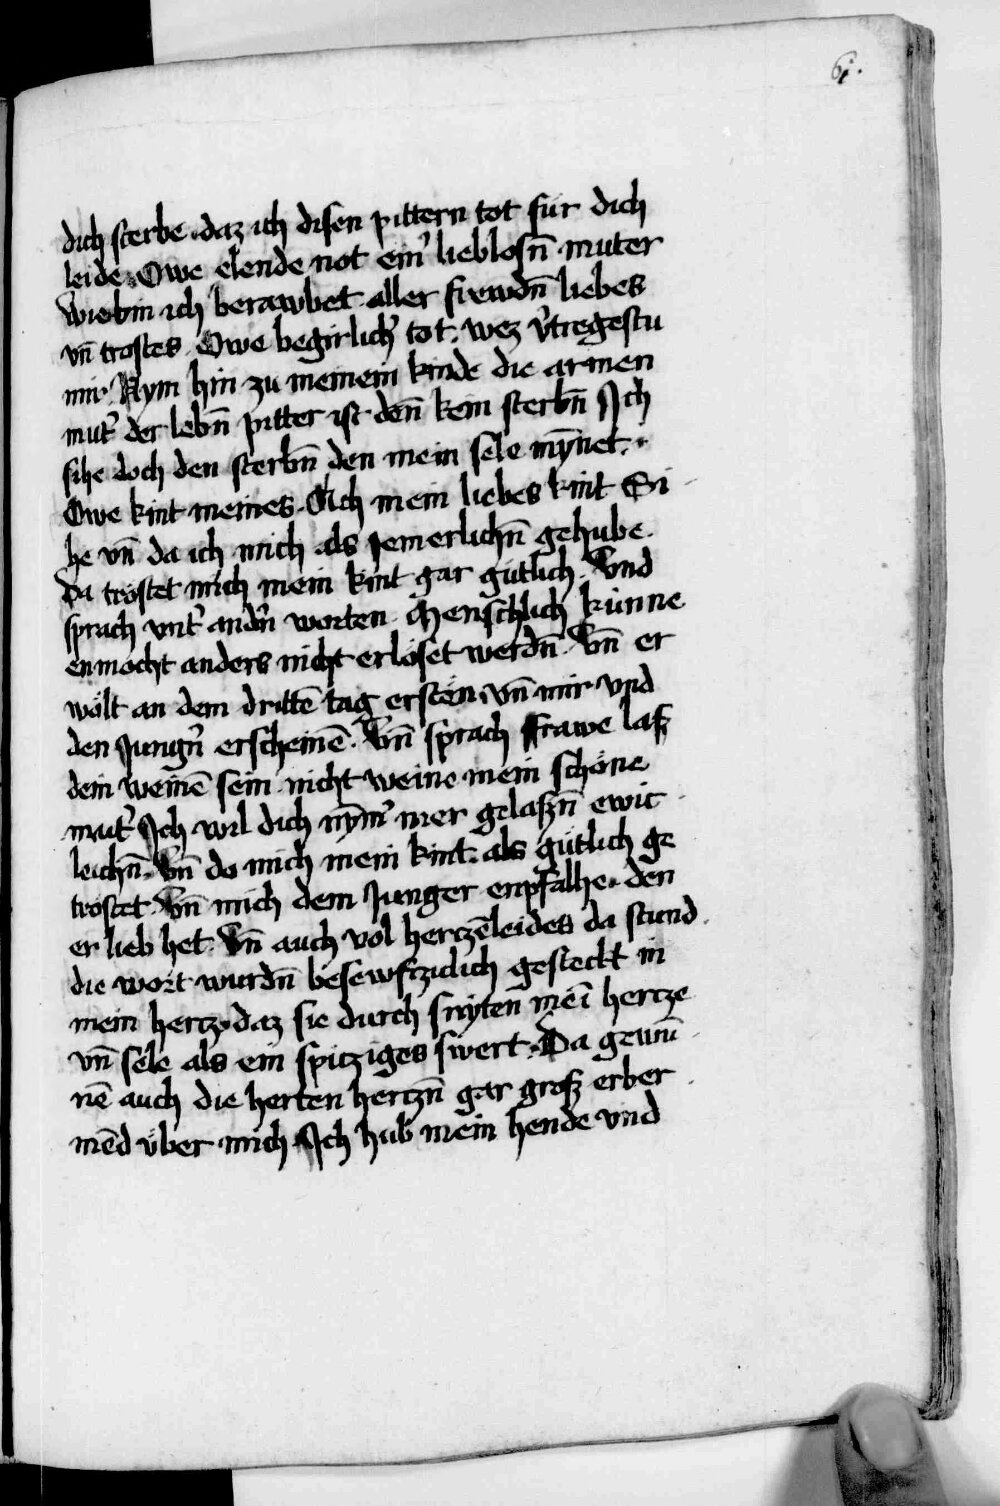 61.
dich sterbe. daz ich disen pittern tot für dich
leide. Owe elende not ein᷑ lieblosn̄ muter
Wie bin ich berawbet aller frewdn̄ liebes
vn̄ trostes. Owe begirlich᷑ tot. wez v᷑tregestu
mir. Nym hin zu meinem kinde die armen
mut᷑ der lebn̄ pitter ist den̄ kein sterbn̄ Ich
sihe doch den sterbn̄ den mein sele mȳnet.
Owe kint meines. Ach mein liebes kint Si
he vn̄ da ich mich als Jemerlichn̄ gehube.
Da tröstet mich mein kint gar gütlich. Vnd
sprach vnt᷑ andn᷑ worten. Menschlich künne
enmöcht anders nicht erlöset werdn̄. Vn̄ er
wölt an dem drittē tag ersten. vn̄ mir vnd
den Jungn᷑ erscheinē. Vn̄ sprach ffrawe laß
dein weinē sein nicht weine mein schöne
mut᷑ Ich wil dich nȳm᷑ mer gelaßn̄ ewic
leichn̄. Vn̄ do mich mein kint als gütlich ge
tröstet. Vn̄ mich dem Junger enpfalhe. den
er lieb het. Vn̄ auch vol hertzēleides da stund.
die wort wurdn̄ besewftziclich gesteckt in
mein hertz. daz sie durch snyten meī hertze
vn̄ sele als ein spitziges swert. Da gewun̄
nē auch die herten hertzn̄ gar groß erber
mēd über mich. Ich hub mein hende vnd